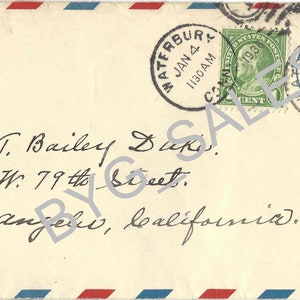 WATERBURY
JAN 4
1130AM
CONN.
UNITED STATES POSTAGE
CENT
T. Bailey
W. 79th Street.
angeles, California.
BYG_SALES